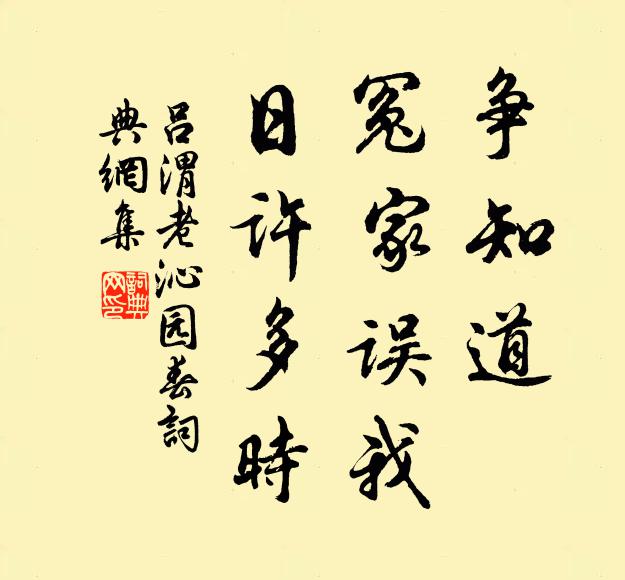 争知道
冤家误我
日许多時
吕渭老沁园春詞
典網集
詞典網印